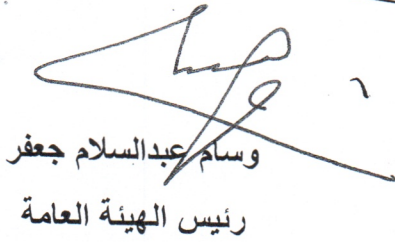 وسام عبدالسلام جعفر
رئيس الهيئة العامة